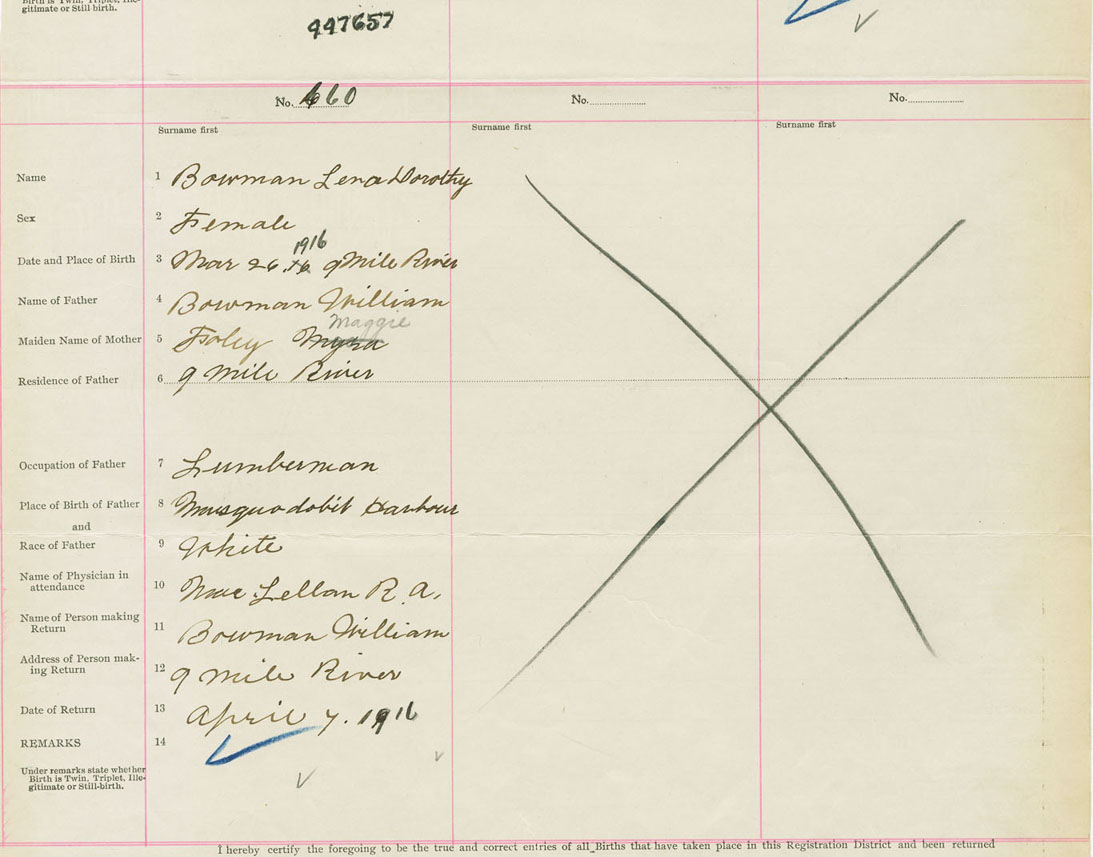 Birth is Twin, Triplet, Ille-
gitimate or Still birth.
447657
No. 660
No.
No.
Surname first
Surname first
Surname first
Name 1 Bowman Lena Dorothy
Sex 2 Female
1916
Date and Place of Birth 3 Mar 26 16 9 Mile River
Name of Father 4 Bowman William
Maggie
Maiden Name of Mother 5 Foley Myra
Residence of Father 6 9 Mile River
Occupation of Father 7 Lumberman
Place of Birth of Father 8 Musquodobit Harbour
and
Race of Father 9 White
Name of Physician in
attendance 10 Mac Lellan R. A.
Name of Person making
Return 11 Bowman William
Address of Person mak-
ing Return 12 9 Mile River
Date of Return 13 April 7. 1916
REMARKS 14
Under remarks state whether
Birth is Twin, Triplet, Ille-
gitimate or Still-birth.
I hereby certify the foregoing to be the true and correct entries of all Births that have taken place in this Registration District and been returned